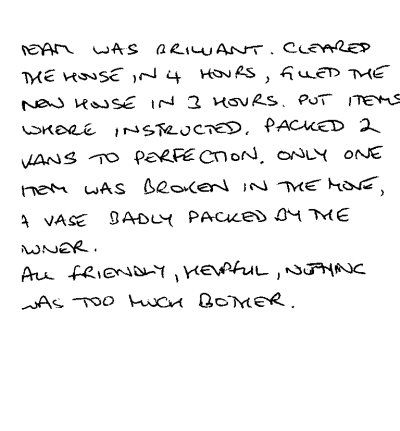 TEAM WAS BRILLIANT. CLEARED
THE HOUSE IN 4 HOURS, FILLED THE
NEW HOUSE IN 3 HOURS. PUT ITEMS
WHERE INSTRUCTED. PACKED 2
VANS TO PERFECTION. ONLY ONE
ITEM WAS BROKEN IN THE MOVE,
A VASE BADLY PACKED BY THE
OWNER.
ALL FRIENDLY, HELPFUL, NOTHING
WAS TOO MUCH BOTHER.